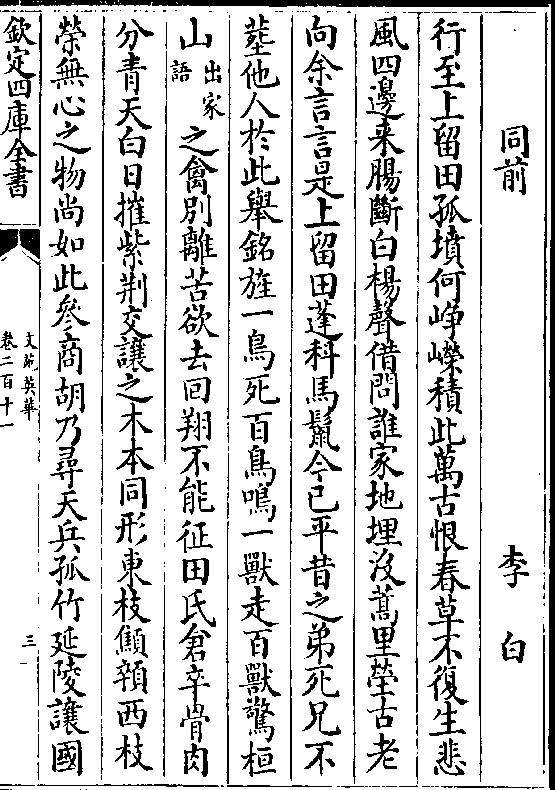 同前　李白
行至上留田孤墳何崢嶸積此萬古恨春草不復生悲
風四邊来腸斷白楊聲借問誰家地埋沒蒿里塋古老
向余言言是上留田蓬科馬鬛今已平昔之弟死兄不
塟他人於此舉銘旌一鳥死百鳥鳴一獸走百獸驚桓
山出家語之禽别離苦欲去回翔不能征田氏倉卒骨肉
分青天白日摧紫荆交讓之木本同形東枝顦顇西枝
榮無心之物尚如此參商胡乃尋天兵孤竹延陵讓國
欽定四庫全書
文苑英華
卷二百十一
三